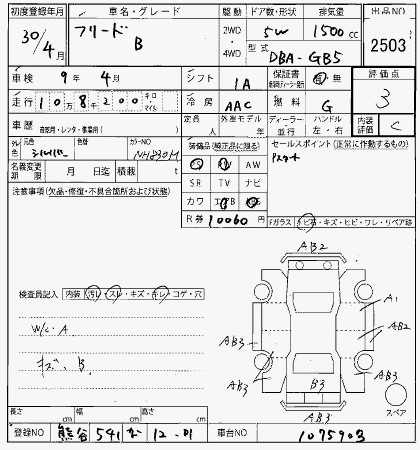 初度登録年月 車名・グレード 駆動 ドア数・形状 排気量 出品NO
30/4月 フリード B 2WD・4WD 5W 1500cc 2503
型式 DBA-GB5
車検 9年4月 シフト IA 保証書 有 無 評価点 3
走行 10万8千200 キロ・マイル 冷房 AAC 燃料 G
車歴 自家用・レンタ・事業用( ) 定員 人 外装モデル 年 ディーラー・並行 ハンドル 左・右 内装 C
外色 元色 シルバー 色 カラーNO NH830M
装備品(純正品に限る) セールスポイント(正常に動作するもの)
PS PW AW Pスタート
名義変更期限 月 日迄 積載 t SR TV ナビ
注意事項(欠品・修復・不具合箇所および状態) カワ エアB
R券 10060円 Fガラス トビ石・キズ・ヒビ・ワレ・リペア跡
AB2
検査員記入 内装 汚レ・スレ・キズ・キレ・コゲ・穴
A1
W/C・A AB3 AB2
キズ、B
AB3 B3 AB3
AB3 スペア
長さ cm 幅 cm 高さ cm
登録NO 熊谷 541 12-01 車台NO 1075903